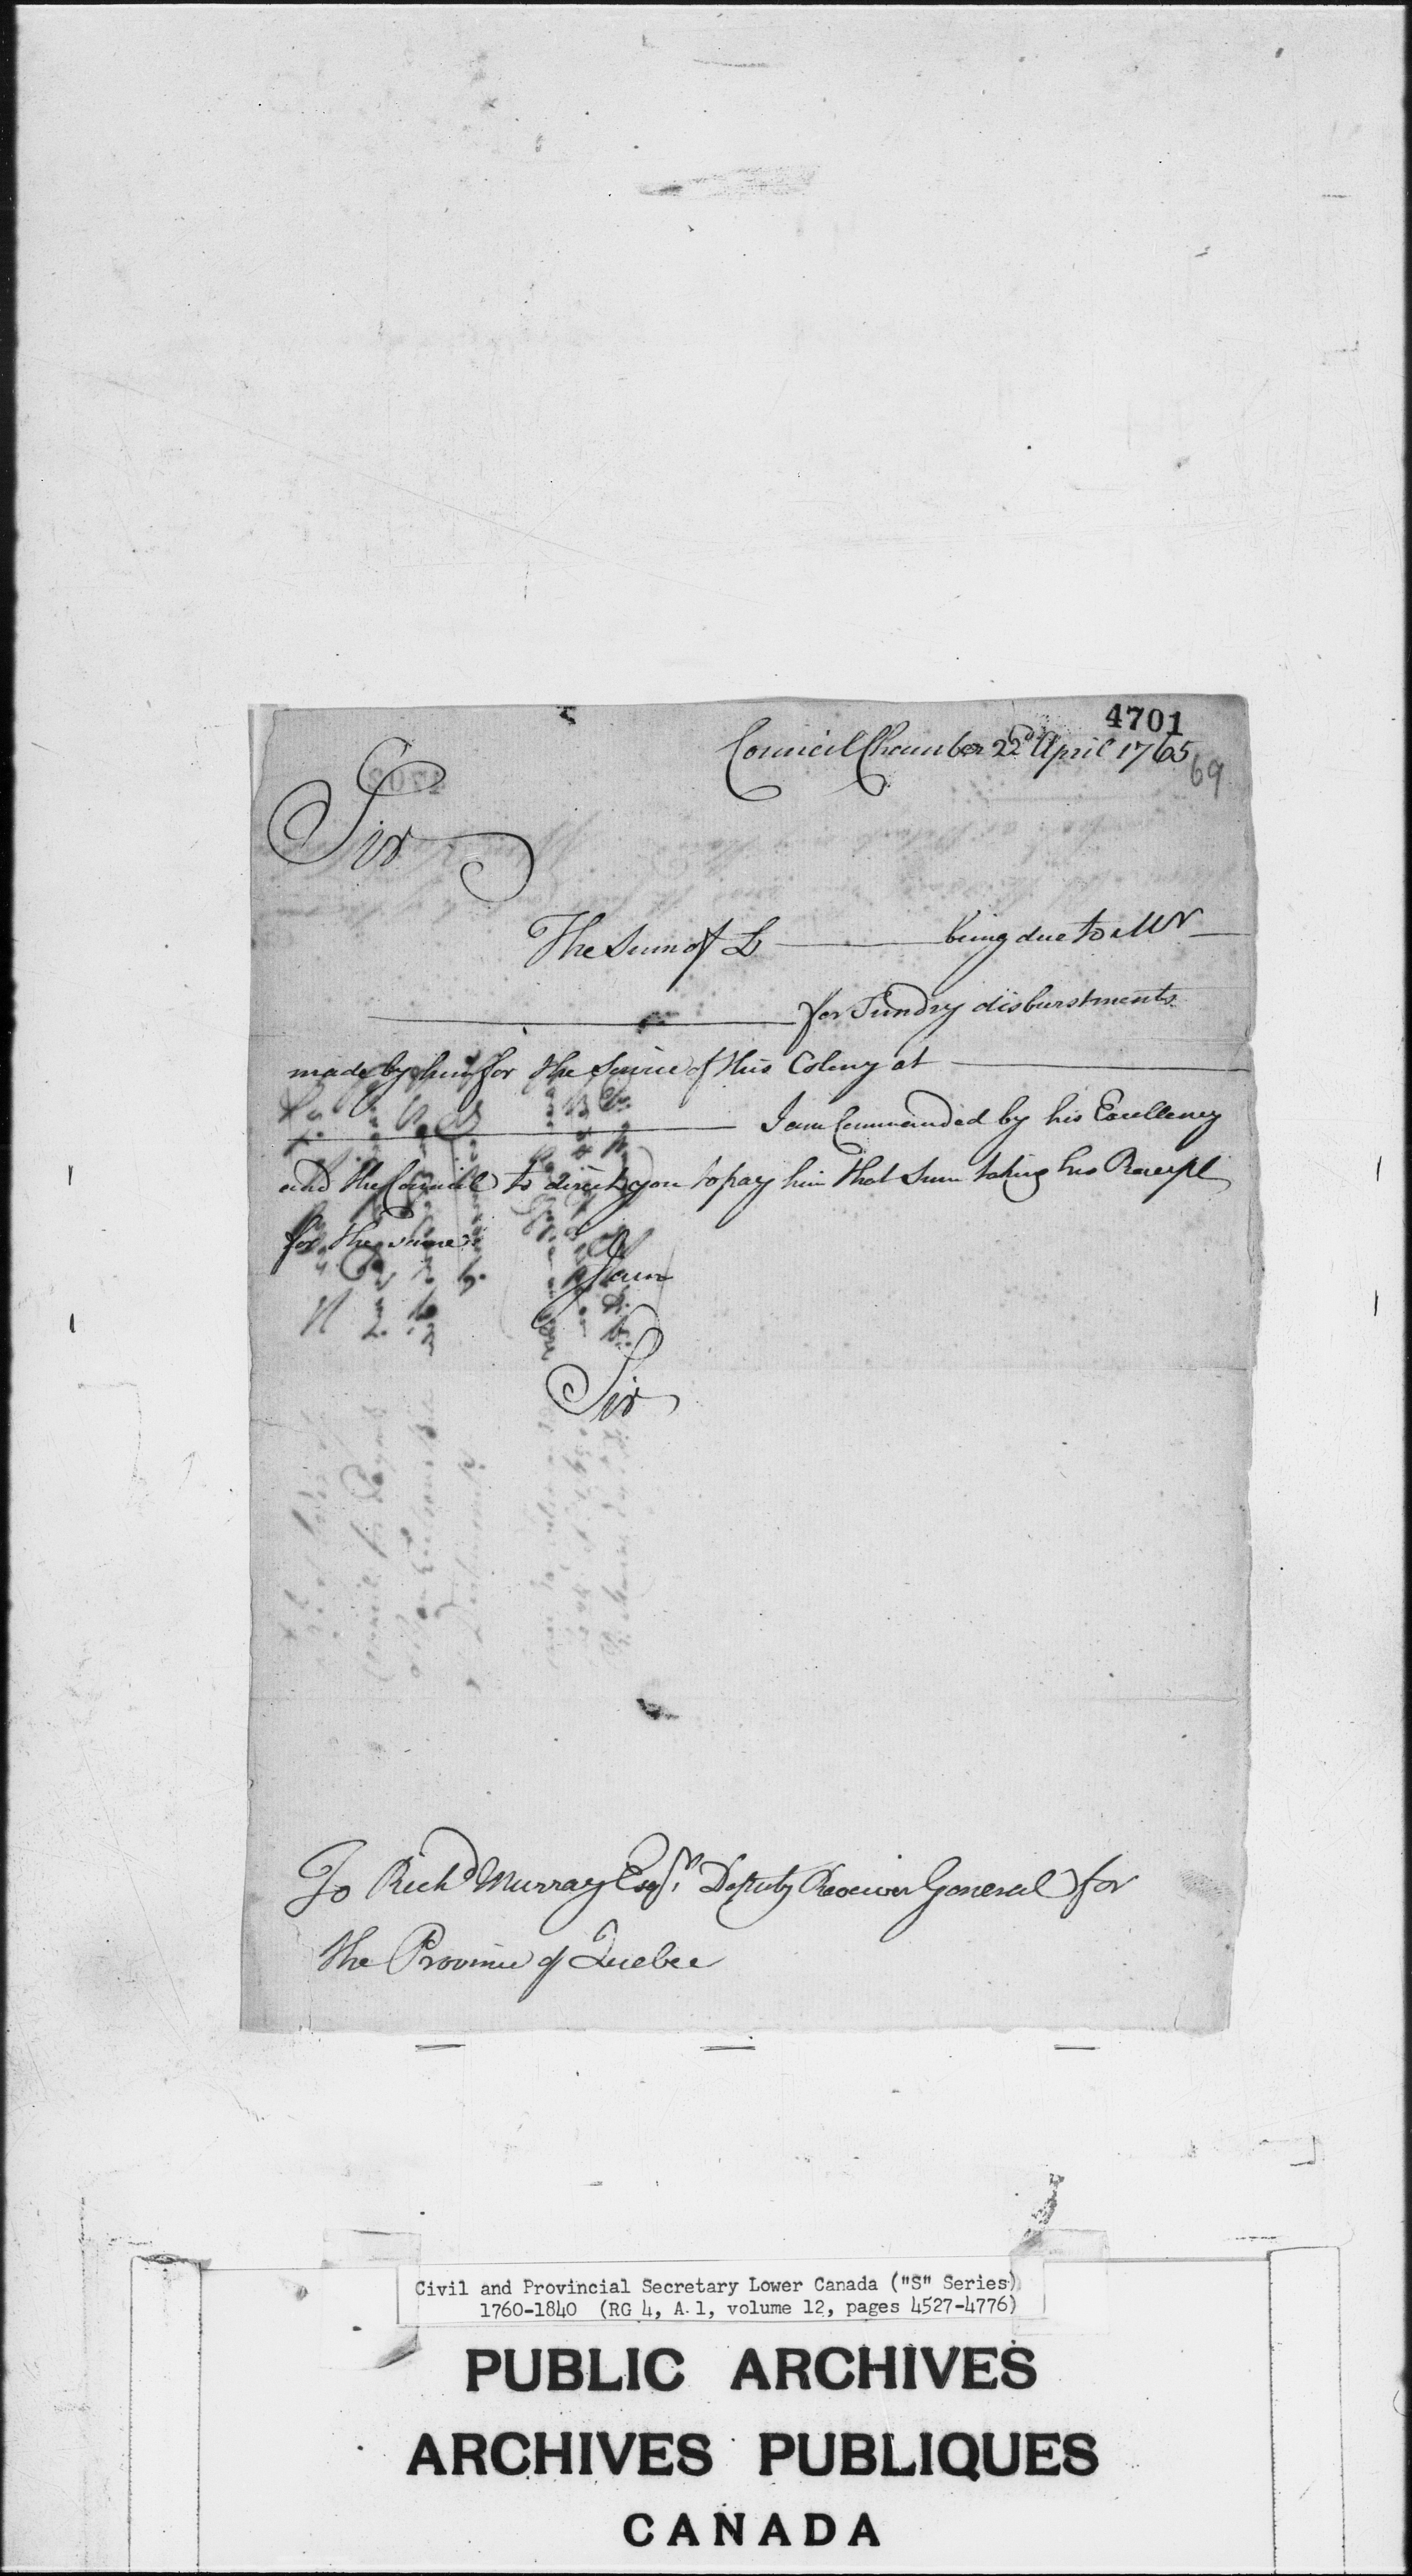 4701
Council Chamber 22d April 1765
69
Sir
The Sum of £ ——— being due to Mr —
——— for Sundry disburstments
made by him for the Service of this Colony at ———
——— I am Commanded by his Excellency
and the Council to direct you to pay him that Sum taking his Receipt
for the same
I am
Sir
To Richd Murray Esqr. Deputy Receiver General for
the Province of Quebec
Civil and Provincial Secretary Lower Canada ("S" Series)
1760-1840 (RG 4, A.1, volume 12, pages 4527-4776)
PUBLIC ARCHIVES
ARCHIVES PUBLIQUES
CANADA